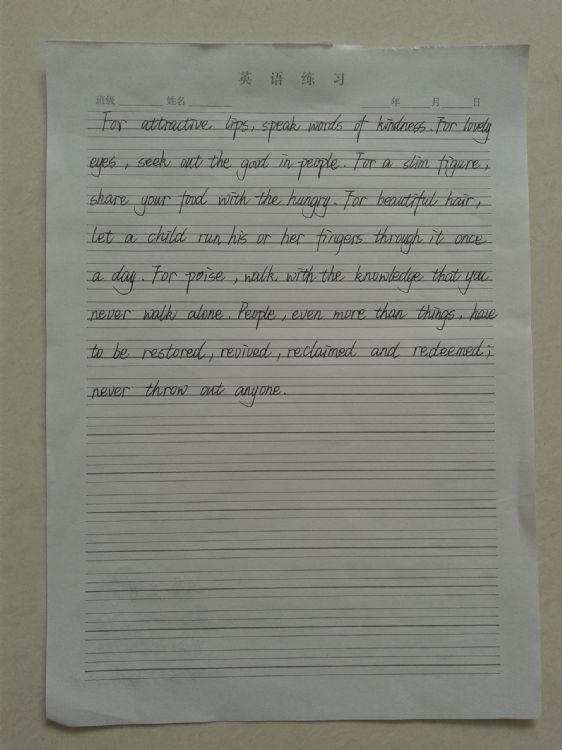 英 语 练 习
班级 姓名 年 月 日
For attractive lips, speak words of kindness. For lovely
eyes, seek out the good in people. For a slim figure,
share your food with the hungry. For beautiful hair,
let a child run his or her fingers through it once
a day. For poise, walk with the knowledge that you
never walk alone. People, even more than things, have
to be restored, revived, reclaimed and redeemed;
never throw out anyone.